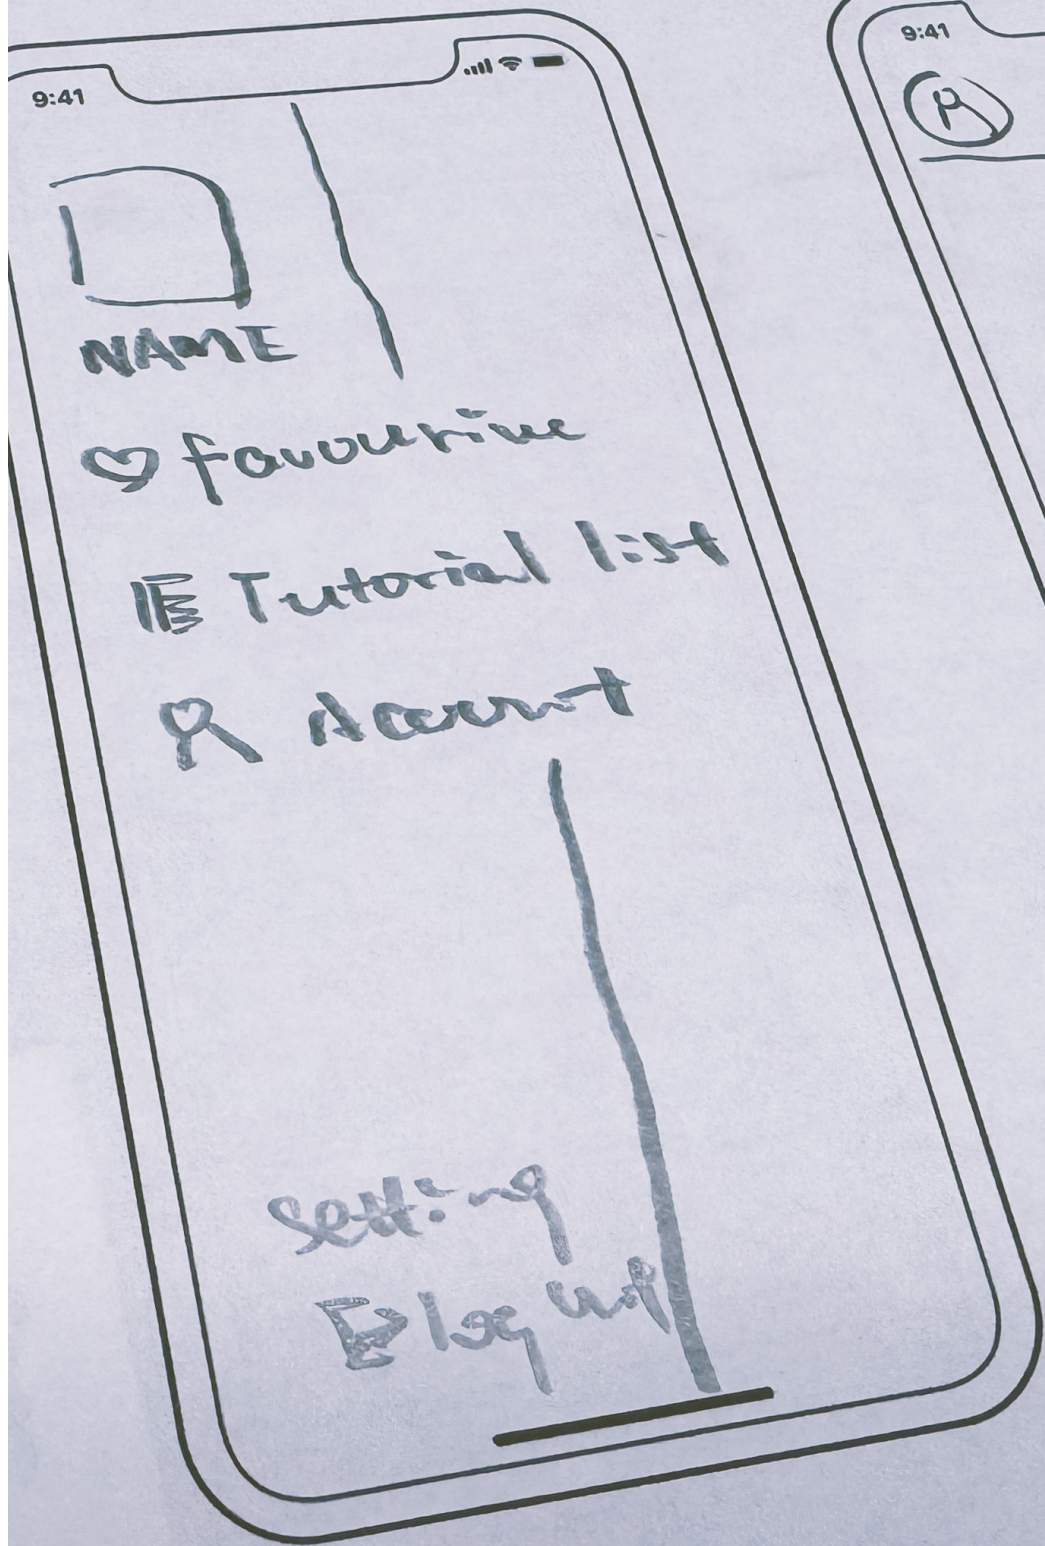 9:41
NAME
favourite
Tutorial list
Account
setting
log out
9:41